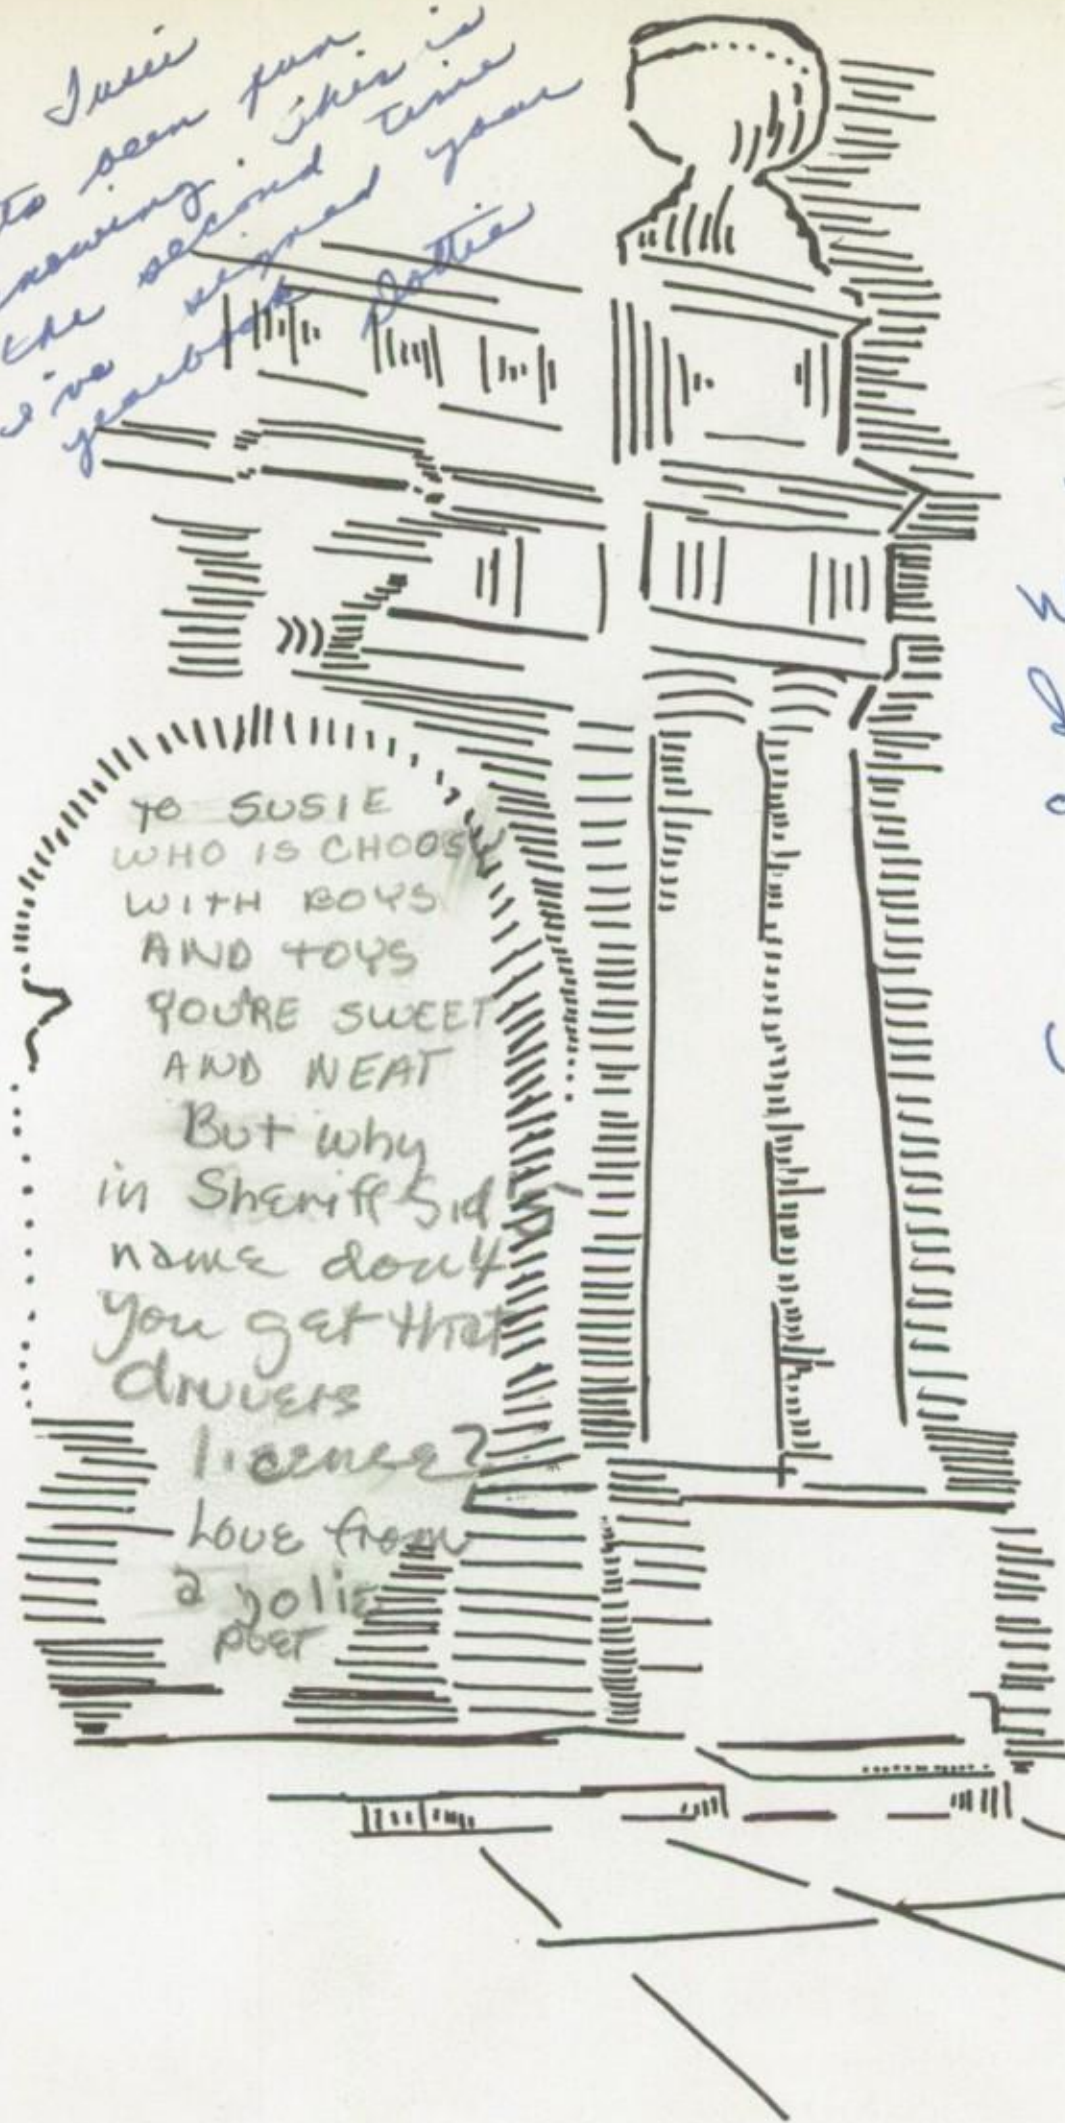 Susie
to seen fun
knowing. This is
the second time
I've signed your
yearbook Dottie
TO SUSIE
WHO IS CHOOSY
WITH BOYS
AND TOYS
YOU'RE SWEET
AND NEAT
But why
in Sheriff Sid
name don't
you get that
druvers
license?
Love from
a jolie
POET